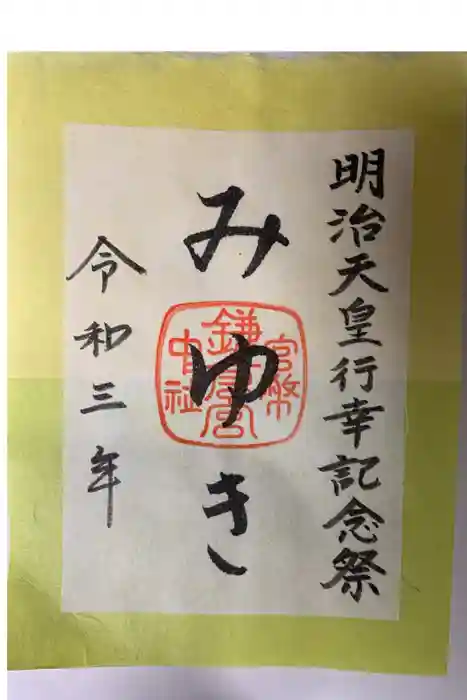 明治天皇行幸記念祭
みゆき
官幣
鎌倉宮
中社
令和三年